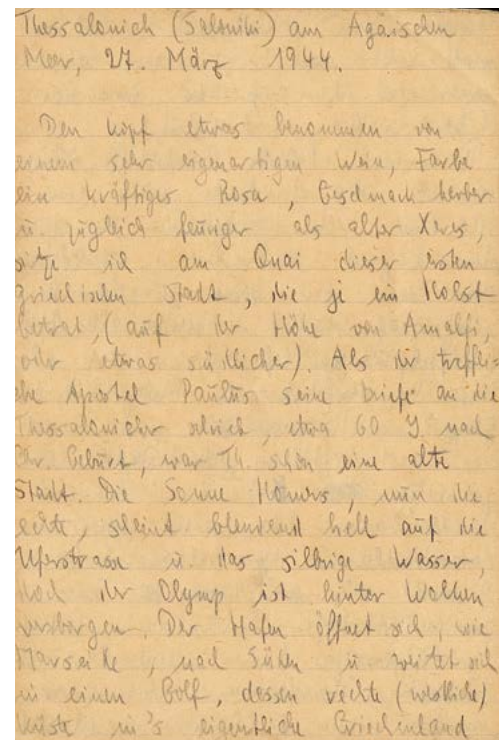 Thessalonich (Saloniki) am Agäischen
Meer, 27. März 1944.
Den Kopf etwas benommen von
einem sehr eigenartigen Wein, Farbe
ein kräftiges Rosa, Geschmack herber
u. zugleich feuriger als alter Xeres,
sitze ich am Quai dieser ersten
griechischen Stadt, die je ein Holst
betrat, (auf der Höhe von Amalfi,
oder etwas südlicher). Als der treffli-
che Apostel Paulus seine Briefe an die
Thessalonicher schrieb, etwa 60 J. nach
Chr. Geburt, war Th. schon eine alte
Stadt. Die Sonne Homers, nun die
echte, scheint blendend hell auf die
Uferstrasse u. das silbrige Wasser,
doch der Olymp ist hinter Wolken
verborgen. Der Hafen öffnet sich, wie
Marseille, nach Süden u. weitet sich
in einen Golf, dessen rechte (westliche)
Küste in's eigentliche Griechenland